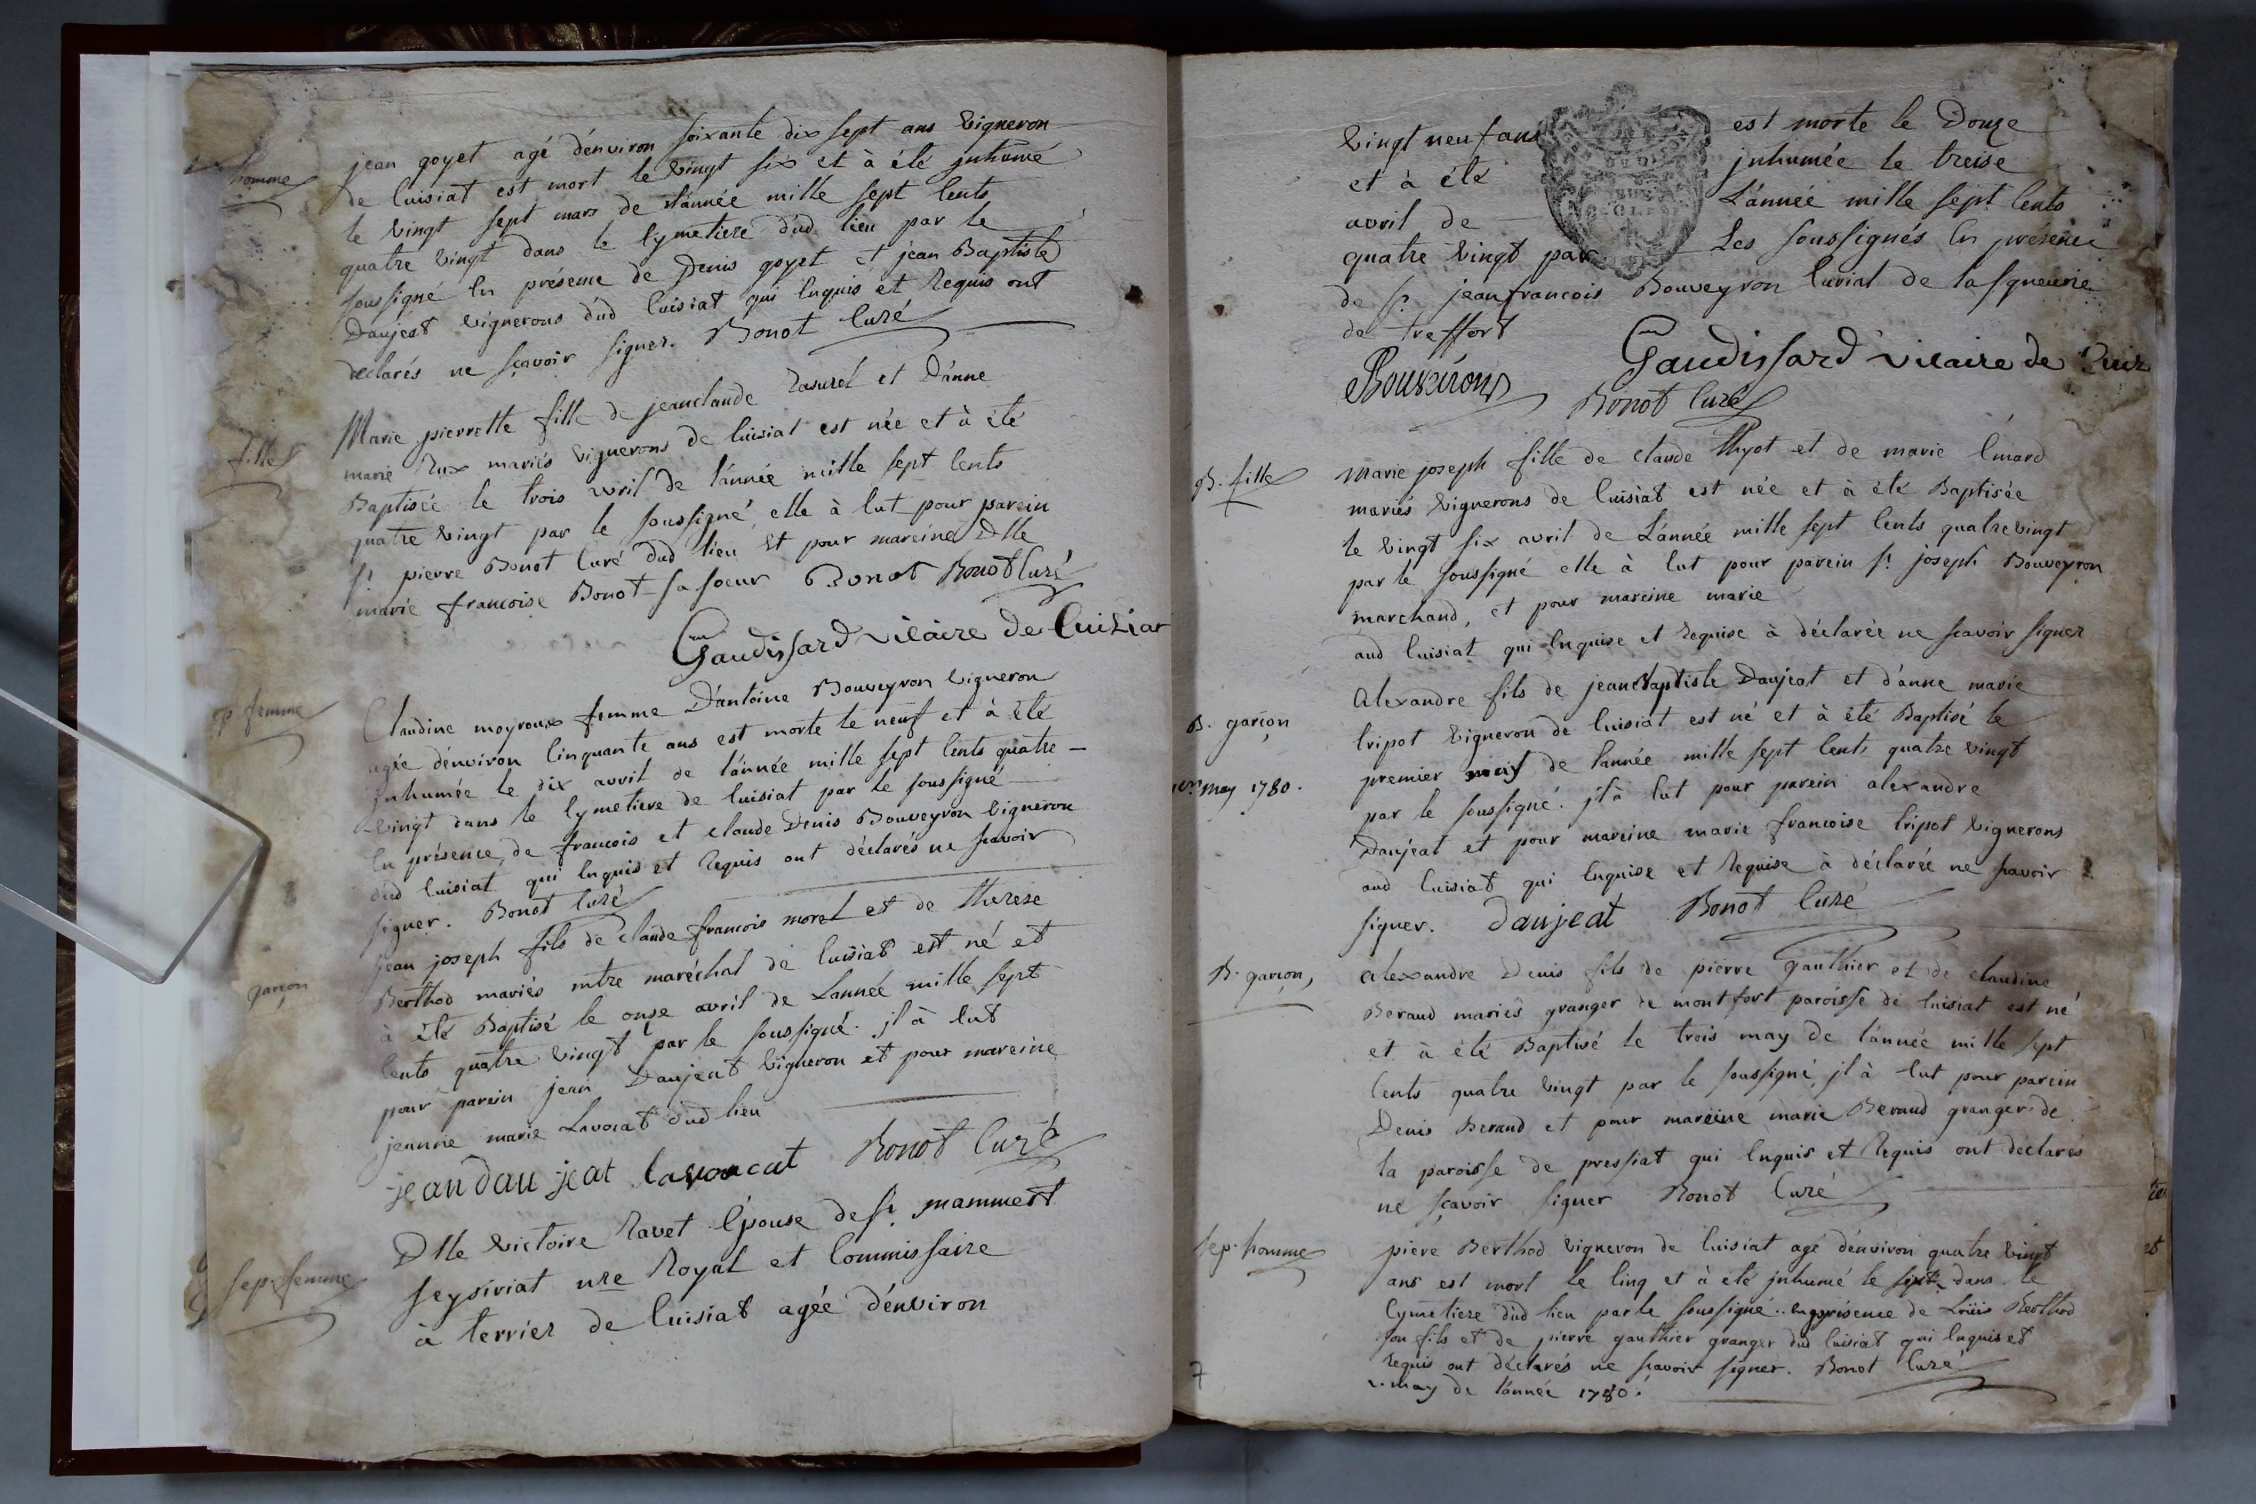 homme
jean goyet agé d'énviron soixante dix sept ans vigneron
de Cuisiat est mort le vingt six et à été jnhumé
le vingt sept mars de l'année mille sept Cents
quatre vingt dans le Cymetiere dud. lieu par le
soussigné En présence de Denis goyet et jean Baptiste
Daujeat vignerons dud Cuisiat qui Enquis et Requis ont
declarés ne sçavoir signer. Bonot Curé
fille
Marie pierrette fille de jeanclaude Rasurel et D'anne
marie Rux mariés vignerons de Cuisiat est née et à été
Baptisée le trois avril de l'année mille sept Cents
quatre vingt par le soussigné, elle à Eut pour parein
sr. pierre Bonot Curé dud lieu et pour mareine Dlle
marie francoise Bonot sa soeur Bonot Bonot Curé
Gaudissard vicaire de Cuiziat
sep. femme
Claudine moyroux femme D'antoine Bouveyron vigneron
agée d'énviron Cinquante ans est morte le neuf et à été
jnhumée le dix avril de l'année mille sept Cents quatre
vingt dans le Cymetiere de Cuisiat par le soussigné
En présence de francois et claude Denis Bouveyron vigneron
dud Cuisiat qui Enquis et Requis ont déclarés ne scavoir
signer. Bonot Curé
garçon
jean joseph fils de claude francois morel et de therese
Berthod mariés mtre maréchal de Cuisiat est né et
à été Baptisé le onze avril de L'année mille sept
Cents quatre vingt par le soussigné. jl à Eut
pour parein jean Daujeat vigneron et pour mareine
jeanne marie Lavocat dud lieu
jean daujeat lavoucat Bonot Curé
sep. femme
Dlle victoire Ravet Epouse de sr. mammert
seysiriat nre Royal et Commissaire
à terrier de Cuisiat agée d'énviron
vingt neuf ans est morte le Douze
et à été jnhumée le treise
avril de L'année mille sept Cents
quatre vingt par Les soussignés En présence
de sr. jean francois Bouveyron Curial de la sgneurie
de treffort
Bouveiron Gaudissard vicaire de Cuiz
Bonot Curé
B. fille
Marie joseph fille de claude Thyot et de marie Emard
mariés vignerons de Cuisiat est née et à été Baptisée
le vingt six avril de L'année mille sept Cents quatre vingt
par le soussigné elle à Eut pour parein sr. joseph Bouveyron
marchand, et pour mareine marie
aud Cuisiat qui Enquise et Requise à déclarée ne scavoir signer
B. garçon
Alexandre fils de jean Baptiste Daujeat et d'anne marie
Tripot vigneron de Cuisiat est né et à été Baptisé le
1er may 1780.
premier may de l'année mille sept Cents quatre vingt
par le soussigné. jl à Eut pour parein alexandre
Daujeat et pour mareine marie francoise Tripot vignerons
aud Cuisiat qui Enquise et Requise à déclarée ne scavoir
signer. daujeat Bonot Curé
B. garçon,
alexandre Denis fils de pierre Gauthier et de claudine
Beraud mariés granger de montfort paroisse de Cuisiat est né
et à été Baptisé le trois may de l'année mille sept
Cents quatre vingt par le soussigné, jl à Eut pour parein
Denis Beraud et pour mareine marie Beraud granger de
la paroisse de pressiat qui Enquis et Requis ont declarés
ne sçavoir signer Bonot Curé
sep. homme
piere Berthod vigneron de Cuisiat agé d'énviron quatre vingt
ans est mort le Cinq et à été jnhumé le sept dans le
Cymetiere dud lieu par le soussigné En présence de Loüis Berthod
son fils et de pierre gauthier granger dud Cuisiat qui Enquis et
Requis ont déclarés ne scavoir signer. Bonot Curé
may de l'année 1780.
7